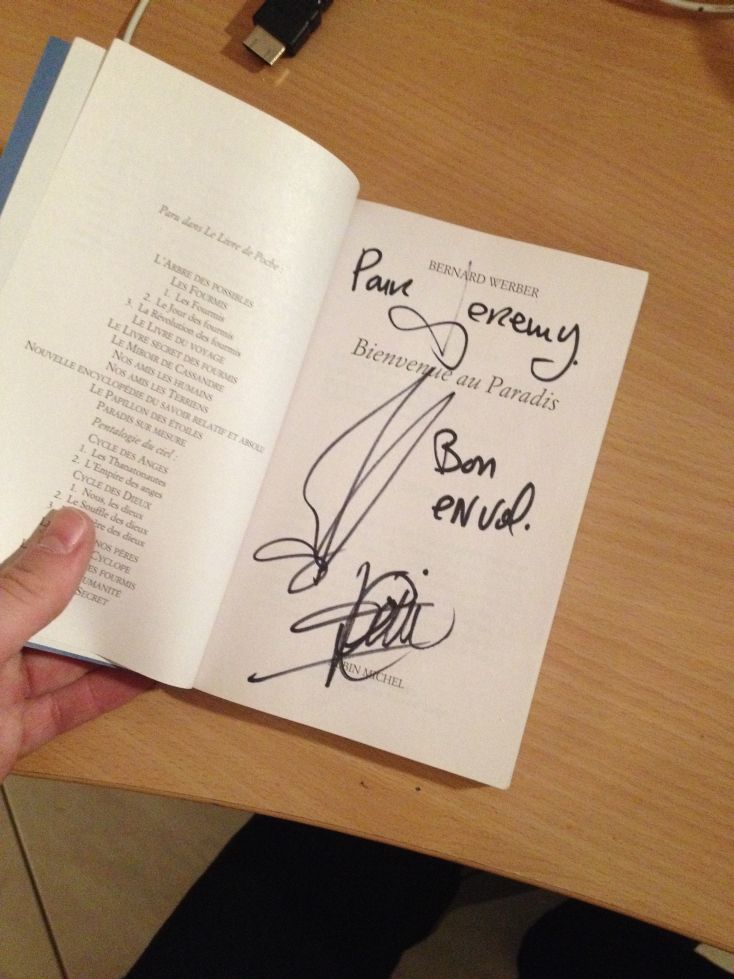 Paru dans Le Livre de Poche :
L'ARBRE DES POSSIBLES
LES FOURMIS
1. Les Fourmis
2. Le Jour des fourmis
3. La Révolution des fourmis
LE LIVRE DU VOYAGE
LE LIVRE SECRET DES FOURMIS
LE MIROIR DE CASSANDRE
NOS AMIS LES HUMAINS
NOS AMIS LES TERRIENS
NOUVELLE ENCYCLOPÉDIE DU SAVOIR RELATIF ET ABSOLU
LE PAPILLON DES ÉTOILES
PARADIS SUR MESURE
Pentalogie du ciel :
CYCLE DES ANGES
1. Les Thanatonautes
2. L'Empire des anges
CYCLE DES DIEUX
1. Nous, les dieux
2. Le Souffle des dieux
3. des dieux
NOS PÈRES
CYCLOPE
DES FOURMIS
HUMANITÉ
SECRET
BERNARD WERBER
Pour Jeremy.
Bienvenue au Paradis
Bon
envol.
BIN MICHEL